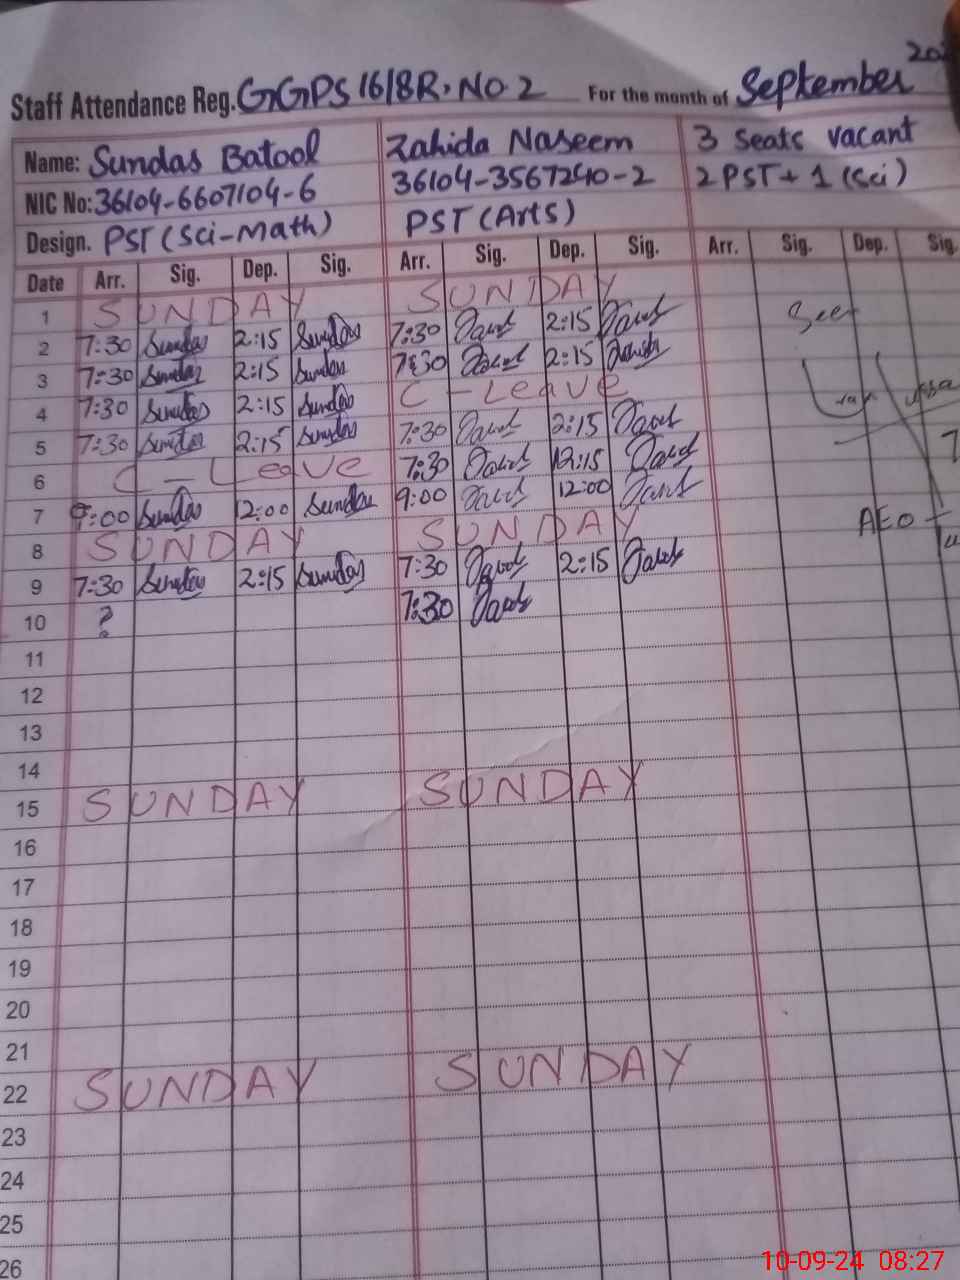 Staff Attendance Reg. GGPS 16/8R. NO 2 For the month of September
Name: Sundas Batool Zahida Naseem 3 Seats vacant
NIC No: 36104-6607104-6 36104-3567240-2 2 PST + 1 (Sci)
Design. PST (Sci-Math) PST (Arts)
Date Arr. Sig. Dep. Sig. Arr. Sig. Dep. Sig. Arr. Sig. Dep. Sig.
1 SUNDAY SUNDAY
2 7:30 Sundas 2:15 Sundas 7:30 2:15
3 7:30 Sundas 2:15 Sundas 7:30 2:15
4 7:30 Sundas 2:15 Sundas C-Leave
5 7:30 Sundas 2:15 Sundas 7:30 2:15
6 C-Leave 7:30 12:15
7 9:00 Sundas 12:00 Sundas 9:00 12:00
8 SUNDAY SUNDAY
AEO
9 7:30 Sundas 2:15 Sundas 7:30 2:15
10 ? 7:30
11
12
13
14
15 SUNDAY SUNDAY
16
17
18
19
20
21
22 SUNDAY SUNDAY
23
24
25
26
10-09-24 08:27